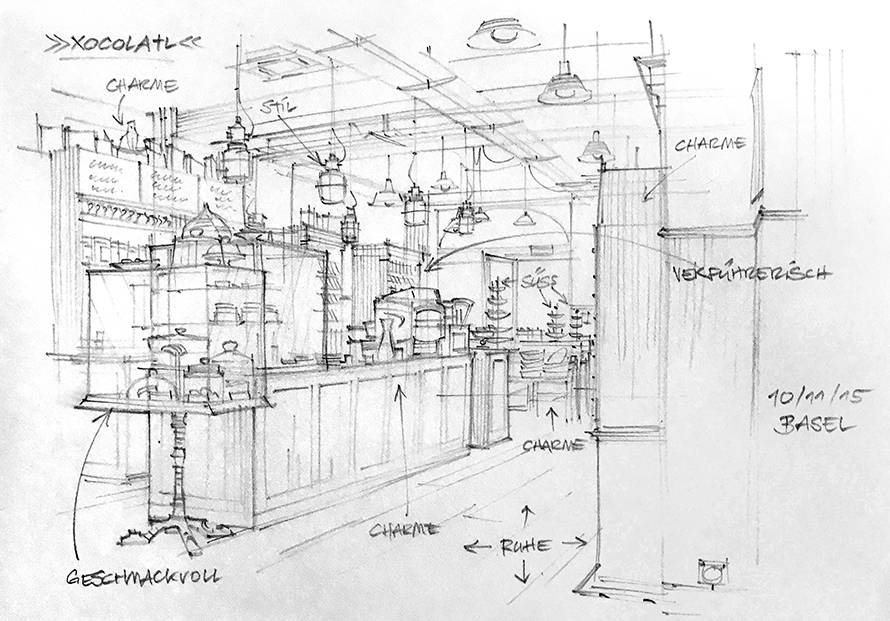 »XOCOLATL«
CHARME
STIL
CHARME
VERFÜHRERISCH
SÜSS
10/11/15
BASEL
CHARME
CHARME
← RUHE →
GESCHMACKVOLL